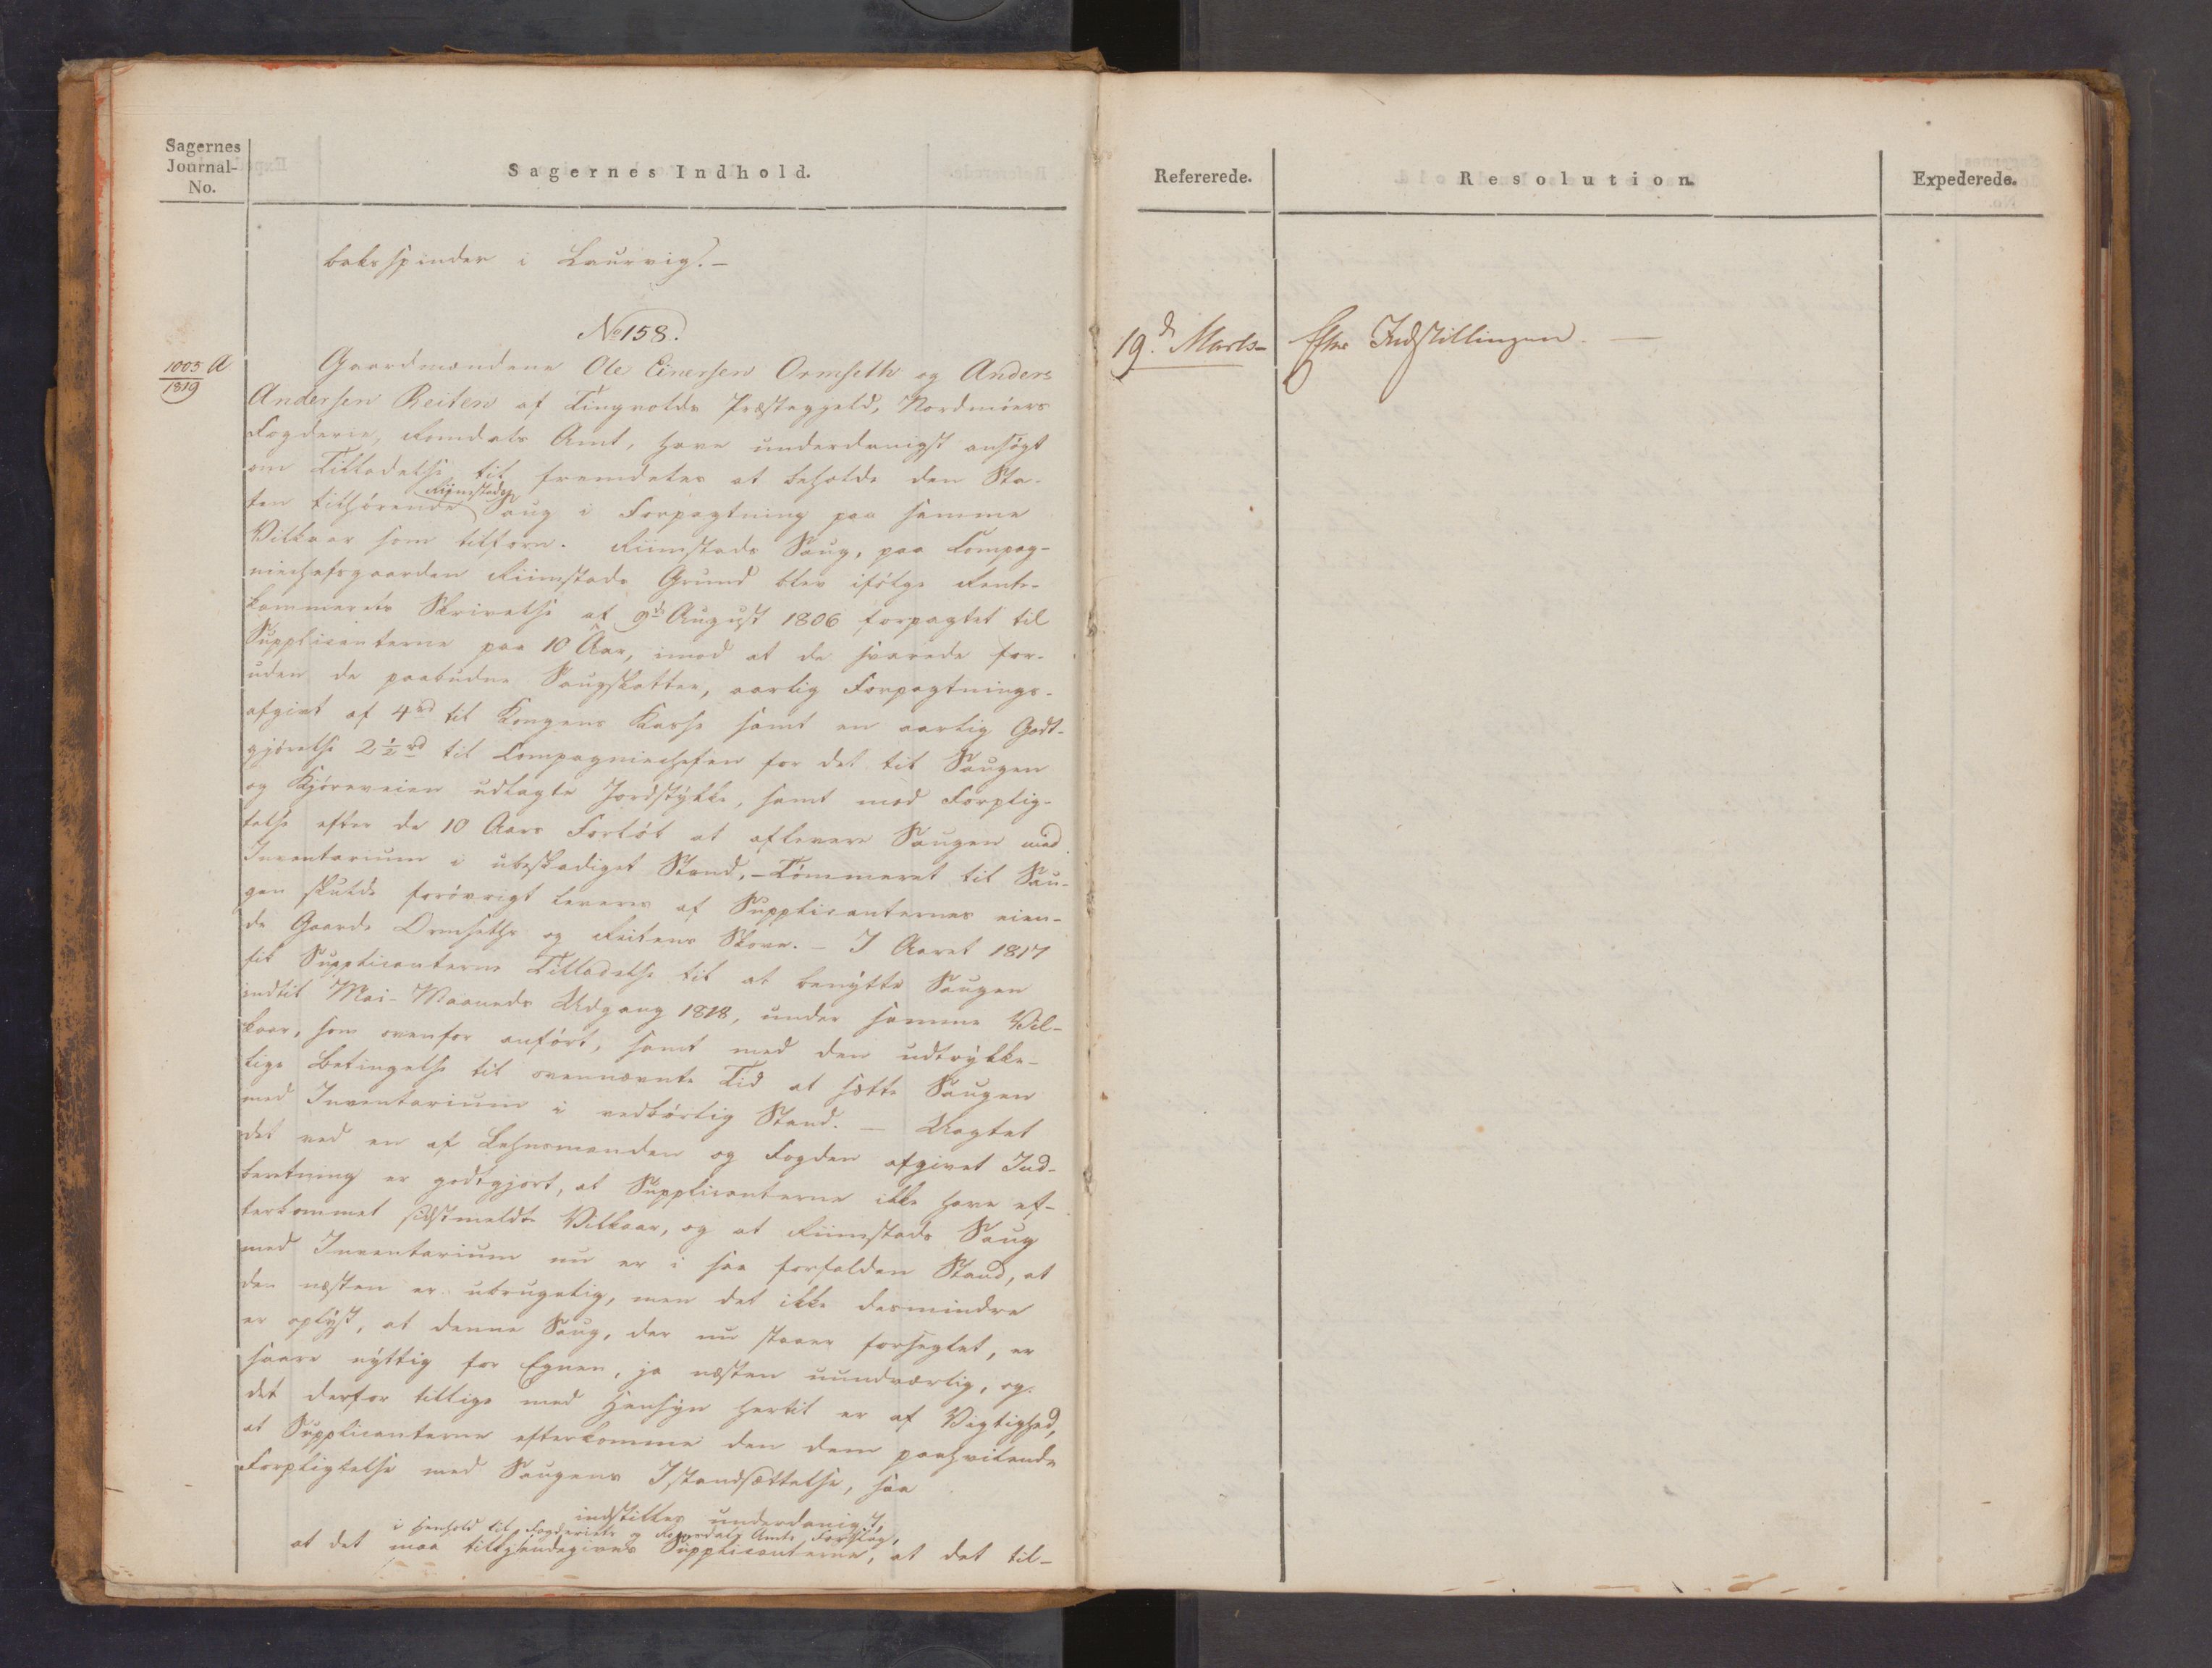 Sagernes
Journal-
No.
Sagernes Indhold.
baksspinder i Laurvig. –
No 158.
1005 A
1819
Gaardmændene Ole Einersen Ormseth og Anders
Andersen Reiten af Tingvolds Præstegjeld, Nordmöers
Fogderie, Romsdals Amt, have underdanigst ansögt
om Tilladelse til fremdeles at beholde den Sta-
ten tilhörende Riimstads Saug i Forpagtning paa samme
Vilkaar som tilforn. Riimstads Saug, paa Compag-
niechefsgaarden Riimstads Grund blev ifölge Rente-
kammerets Skrivelse af 9de August 1806 forpagtet til
Supplicanterne paa 10 Aar, imod at de svarede for-
uden de paabudne Saugskatter, aarlig Forpagtnings-
afgivt af 4 rd til Kongens Kasse samt en aarlig Godt-
gjörelse 2½ rd til Compagniechefen for det til Saugen
og Kjöreveien udlagte Jordstykke, samt med Forplig-
telse efter de 10 Aars Forlöb at aflevere Saugen med
Inventarium i ubeskadiget Stand, – Tömmeret til Sau-
gen skulde forövrigt leveres af Supplicanternes eien-
de Gaarde Ormseths og Reitens Skove. – I Aaret 1817
fik Supplicanterne Tilladelse til at benytte Saugen
indtil Mai-Maaneds Udgang 1818, under samme Vil-
kaar, som ovenfor anfört, samt med den udtrykke-
lige Betingelse til ovennævnte Tid at sætte Saugen
med Inventarium i vedbörlig Stand. – Uagtet
det ved en af Lehnsmanden og Fogden afgivet Ind-
beretning er godtgjort, at Supplicanterne ikke have ef-
terkommet sidstmeldte Vilkaar, og at Riimstads Saug
med Inventarium nu er i saa forfalden Stand, at
den næsten er ubrugelig, men det ikke desmindre
er oplyst, at denne Saug, der nu staaer forseglet, er
saare nyttig for Egnen, ja næsten uundværlig, og
det derfor tillige med Hensyn hertil er af Vigtighed,
at Supplicanterne efterkomme den dem paahvilende
Forpligtelse med Saugens Istandsættelse, saa
indstilles underdanigst,
i Henhold til Fogderiets og Romsdals Amts Forslag,
at det maa tilkjendegives Supplicanterne, at det til-
Refererede.
Resolution.
Expederede.
19de Marts –
Efter Indstillingen. –